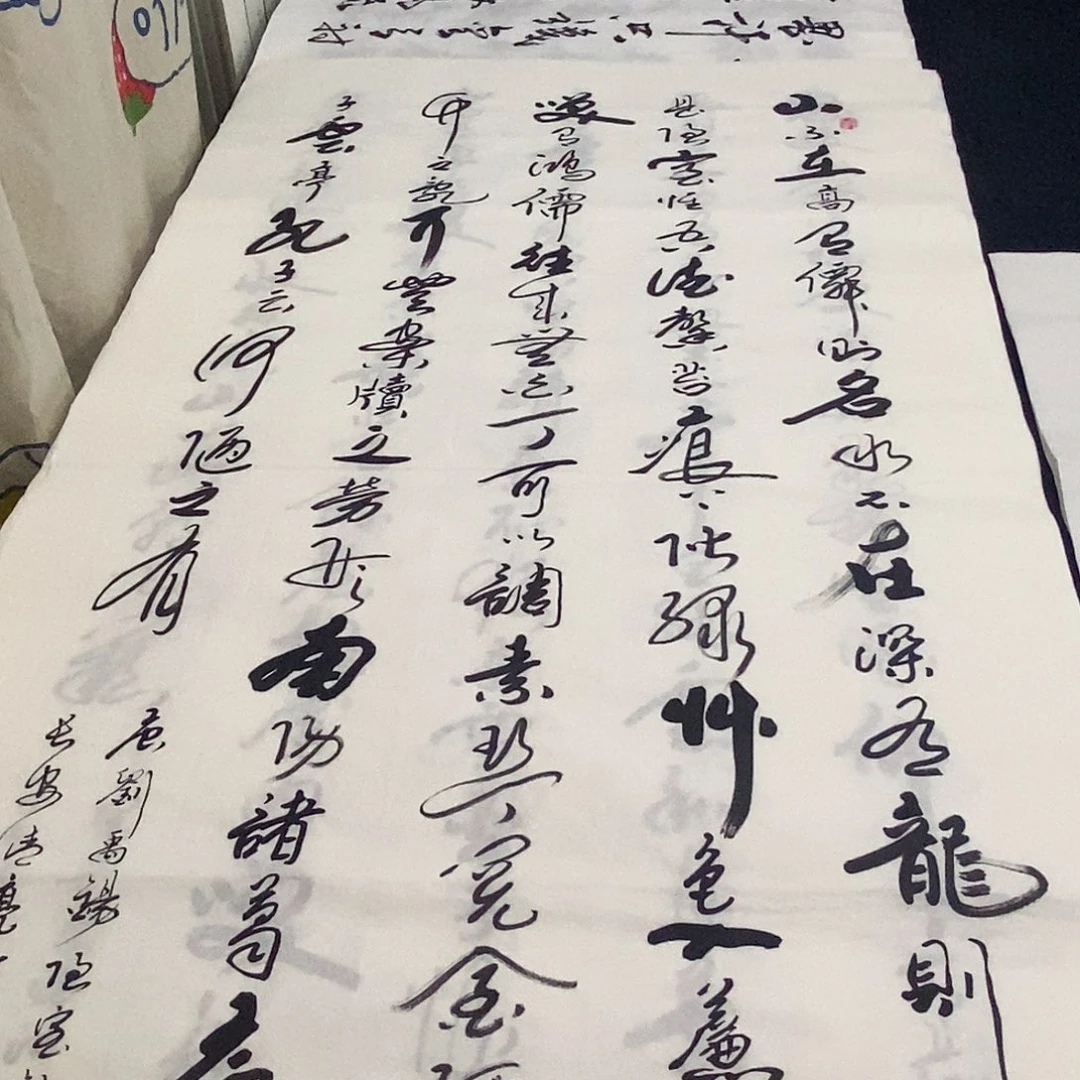 山不在高有僊則名水不在深有龍則
是陋室惟吾德馨苔痕上階綠艸色入簾
笑有鴻儒往来無白丁可以調素琴閱金
竹之亂耳無案牘之勞形南陽諸葛
子雲亭孔子云何陋之有
劉禹錫陋室
長安清亮